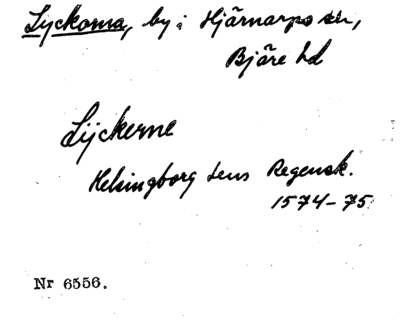 Lyckorna, by i Hjärnarps sn,
Bjäre hd
Lÿckerne
Helsingborg Lens Regensk.
1574-75
Nr 6556.